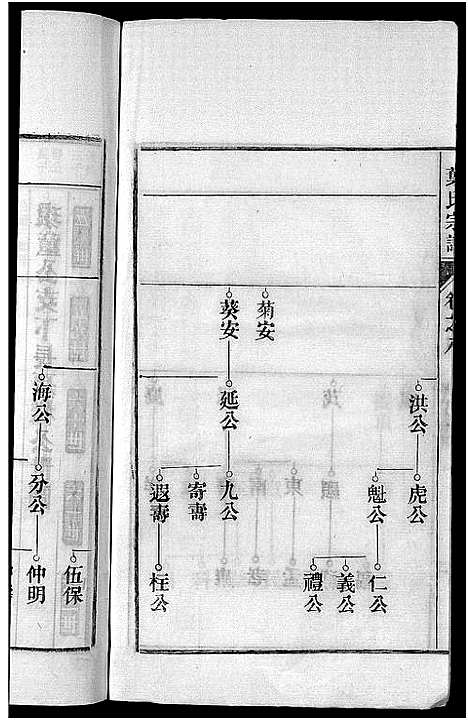 氏宗譜
菊安
葵安
洪公
延公
虎公
魁公
九公
寄壽
遐壽
仁公
義公
禮公
枉公
海公
分公
伍保
仲明